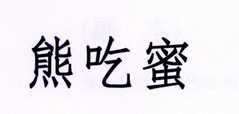 熊吃蜜